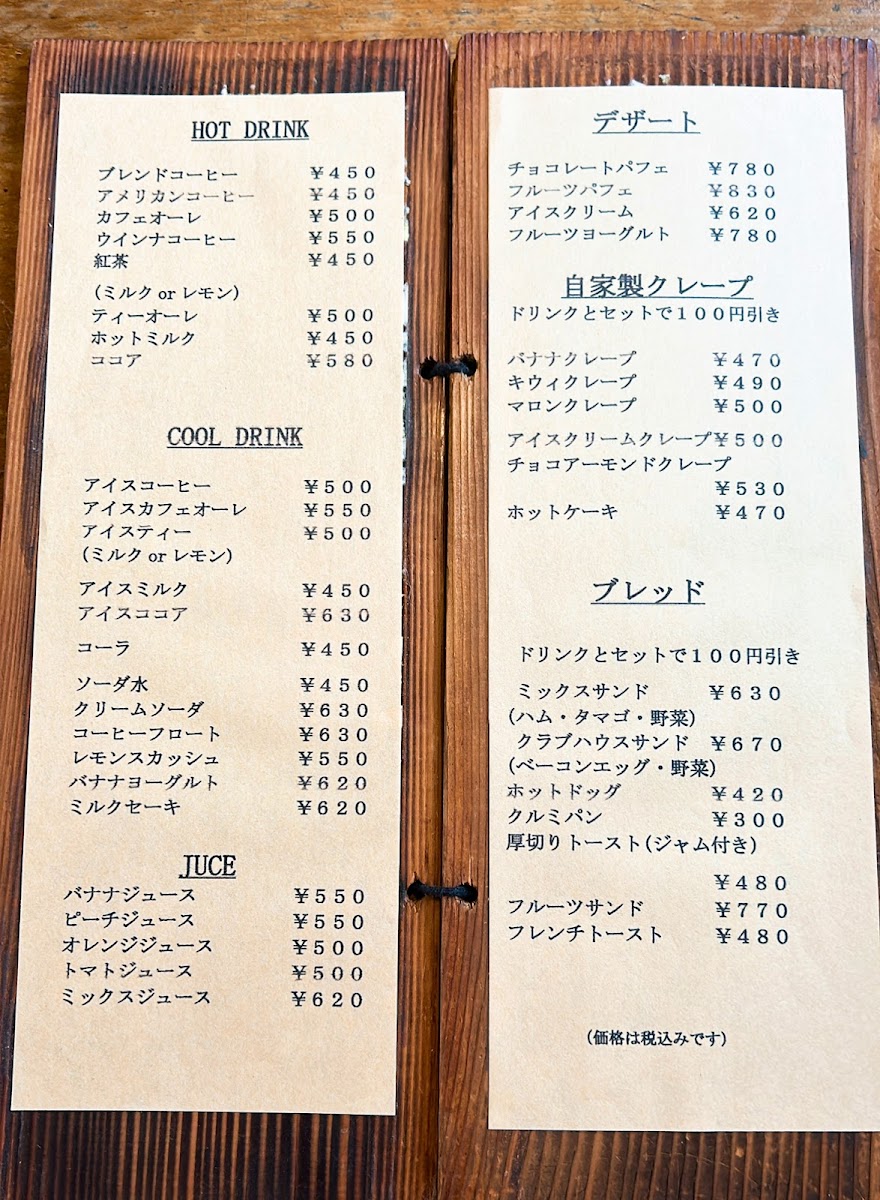 HOT DRINK
ブレンドコーヒー ￥４５０
アメリカンコーヒー ￥４５０
カフェオーレ ￥５００
ウインナコーヒー ￥５５０
紅茶 ￥４５０
(ミルク or レモン)
ティーオーレ ￥５００
ホットミルク ￥４５０
ココア ￥５８０
COOL DRINK
アイスコーヒー ￥５００
アイスカフェオーレ ￥５５０
アイスティー ￥５００
(ミルク or レモン)
アイスミルク ￥４５０
アイスココア ￥６３０
コーラ ￥４５０
ソーダ水 ￥４５０
クリームソーダ ￥６３０
コーヒーフロート ￥６３０
レモンスカッシュ ￥５５０
バナナヨーグルト ￥６２０
ミルクセーキ ￥６２０
JUCE
バナナジュース ￥５５０
ピーチジュース ￥５５０
オレンジジュース ￥５００
トマトジュース ￥５００
ミックスジュース ￥６２０
デザート
チョコレートパフェ ￥７８０
フルーツパフェ ￥８３０
アイスクリーム ￥６２０
フルーツヨーグルト ￥７８０
自家製クレープ
ドリンクとセットで１００円引き
バナナクレープ ￥４７０
キウィクレープ ￥４９０
マロンクレープ ￥５００
アイスクリームクレープ￥５００
チョコアーモンドクレープ
￥５３０
ホットケーキ ￥４７０
ブレッド
ドリンクとセットで１００円引き
ミックスサンド ￥６３０
(ハム・タマゴ・野菜)
クラブハウスサンド ￥６７０
(ベーコンエッグ・野菜)
ホットドッグ ￥４２０
クルミパン ￥３００
厚切りトースト(ジャム付き)
￥４８０
フルーツサンド ￥７７０
フレンチトースト ￥４８０
(価格は税込みです)